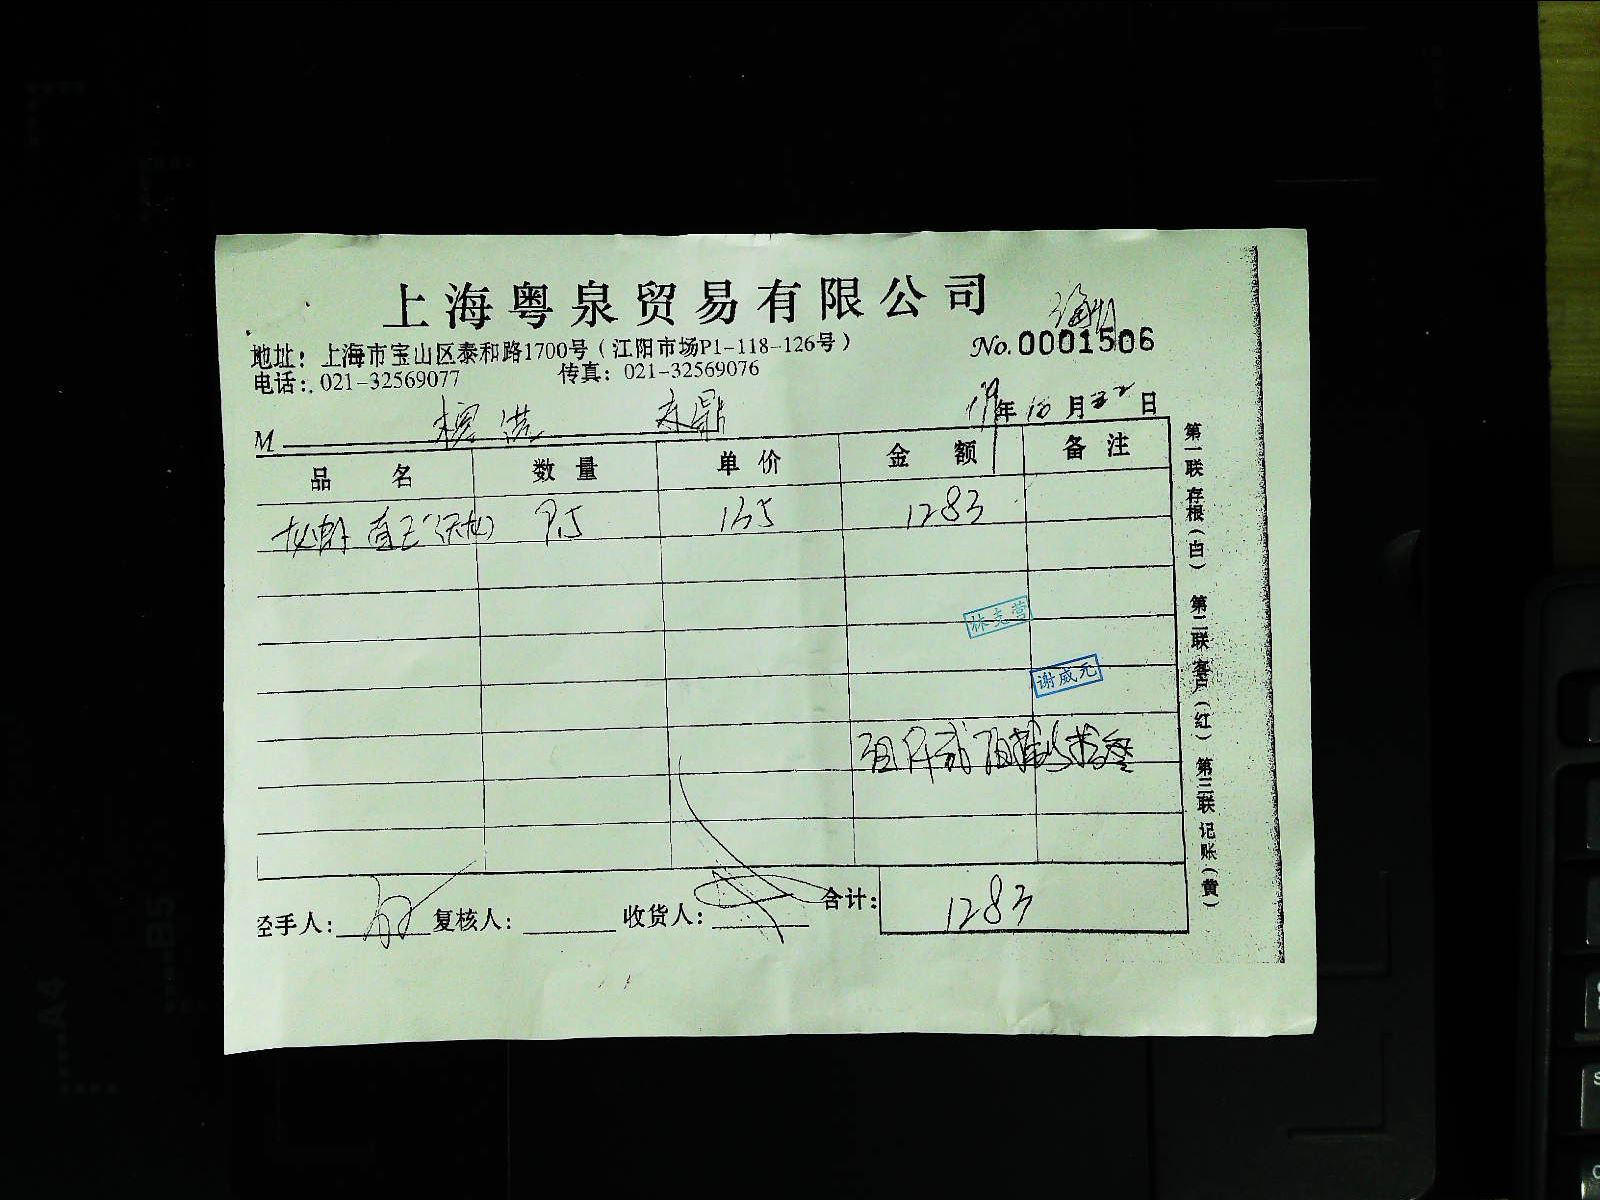 上海粤泉贸易有限公司
地址：上海市宝山区泰和路1700号（江阳市场P1-118-126号）
No.0001506
电话：021-32569077 传真：021-32569076
M
19年10月22日
品名 数量 单价 金额 备注
9.5 135 1283
林克营
谢威元
壹仟贰佰捌拾叁
经手人： 复核人： 收货人： 合计：1283
第一联存根（白） 第二联客户（红） 第三联记账（黄）